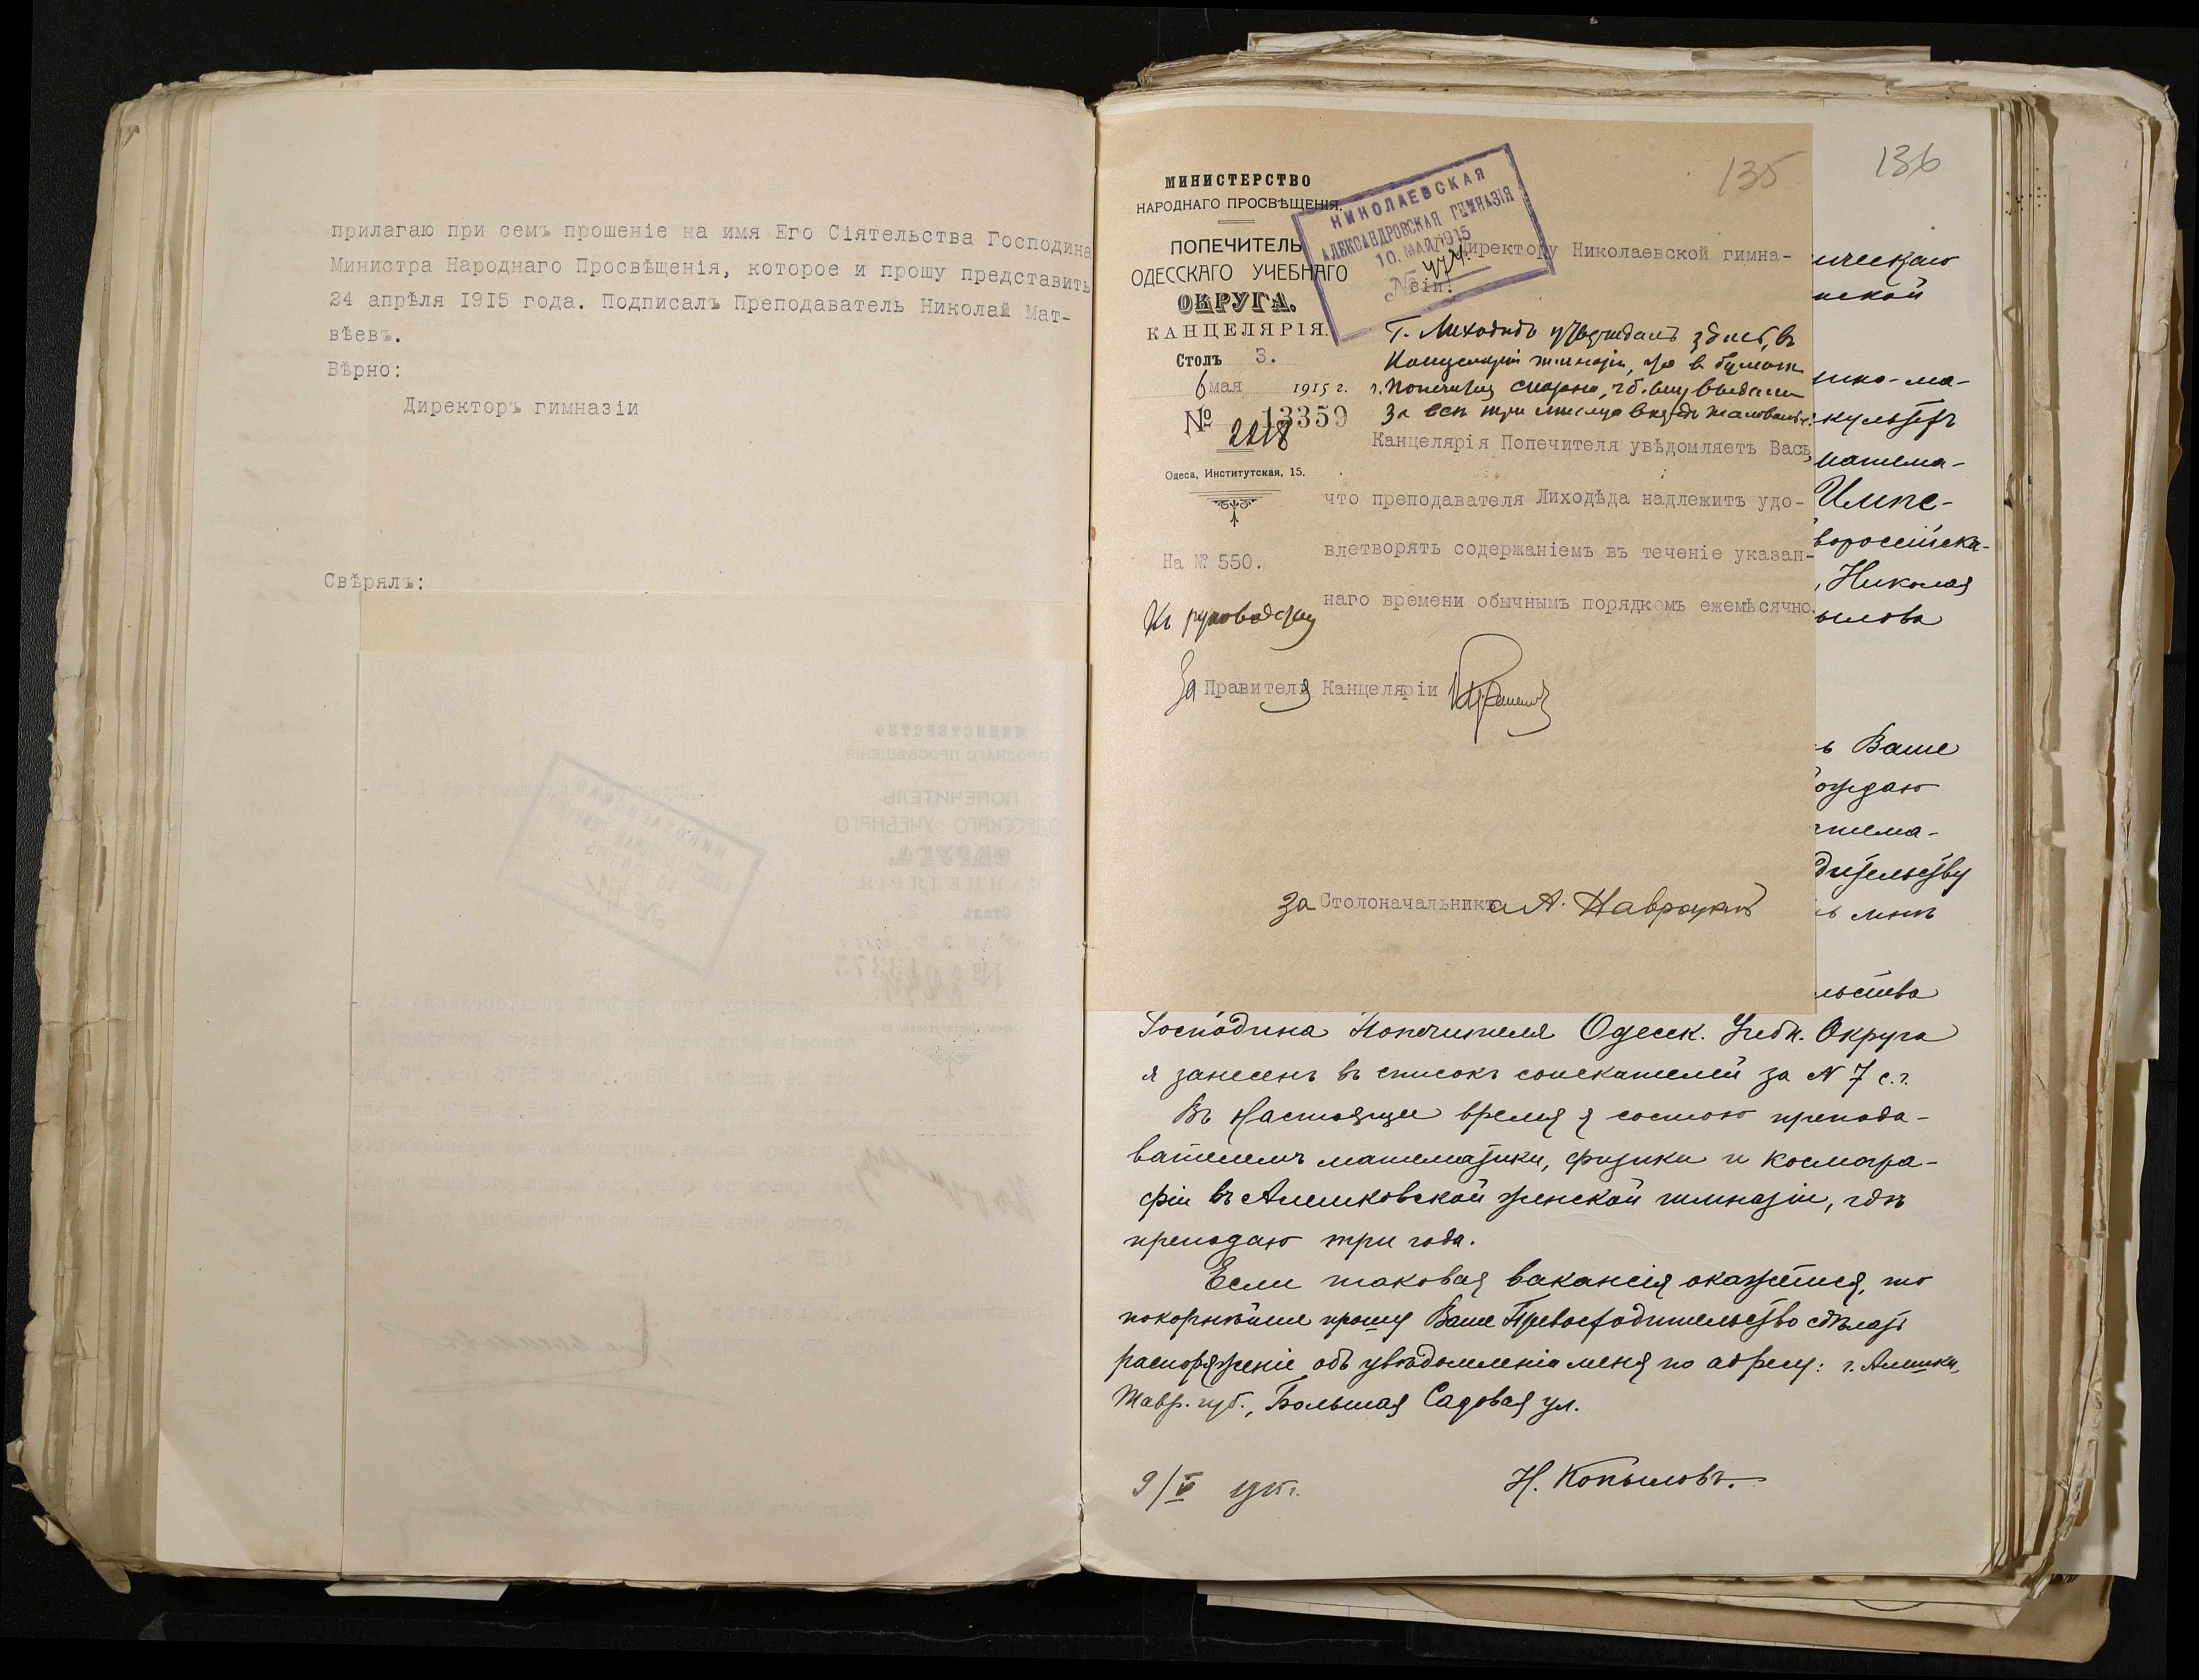 прилагаю при семъ прошеніе на имя Его Сіятельства Господина
Министра Народнаго Просвѣщенія, которое и прошу представить
24 апрѣля 1915 года. Подписалъ Преподаватель Николай Мат-
вѣевъ.
Вѣрно:
Директоръ гимназіи
Свѣрялъ:
135
136
МИНИСТЕРСТВО
НАРОДНАГО ПРОСВѢЩЕНІЯ.
ПОПЕЧИТЕЛЬ
ОДЕССКАГО УЧЕБНАГО
ОКРУГА.
КАНЦЕЛЯРІЯ.
Столъ 3.
6 мая 1915 г.
№ 13359
2218
Одеса, Институтская, 15.
На № 550.
Къ руководству
НИКОЛАЕВСКАЯ
АЛЕКСАНДРОВСКАЯ ГИМНАЗІЯ
10. МАЯ 1915
№
Директору Николаевской гимна-
зіи.
Г. Лиходѣдъ здѣсь, въ
Канцеляріи гимназіи,
г. Попечителя
за всѣ три мѣсяца
Канцелярія Попечителя увѣдомляетъ Васъ,
что преподавателя Лиходѣда надлежитъ удо-
влетворять содержаніемъ въ теченіе указан-
наго времени обычнымъ порядкомъ ежемѣсячно.
За Правителя Канцеляріи
за Столоначальника А. Навроцкій
ическаго
нской
ико-ма-
культетъ
матема-
Импе-
вороссійска-
, Николая
ылова
ъ Ваше
ождаю
тема-
дительству
ь мнѣ
льства
Господина Попечителя Одесск. Учебн. Округа
я занесенъ въ списокъ соискателей за N 7 с.г.
Въ настоящее время я состою препода-
вателемъ математики, физики и космогра-
фіи въ Алешковской женской гимназіи, гдѣ
преподаю три года.
Если таковая вакансія окажется, то
покорнѣйше прошу Ваше Превосходительство сдѣлать
распоряженіе объ увѣдомленіи меня по адресу: г. Алешки,
Тавр. губ., Большая Садовая ул.
9/V 1915 г.
Н. Копыловъ.